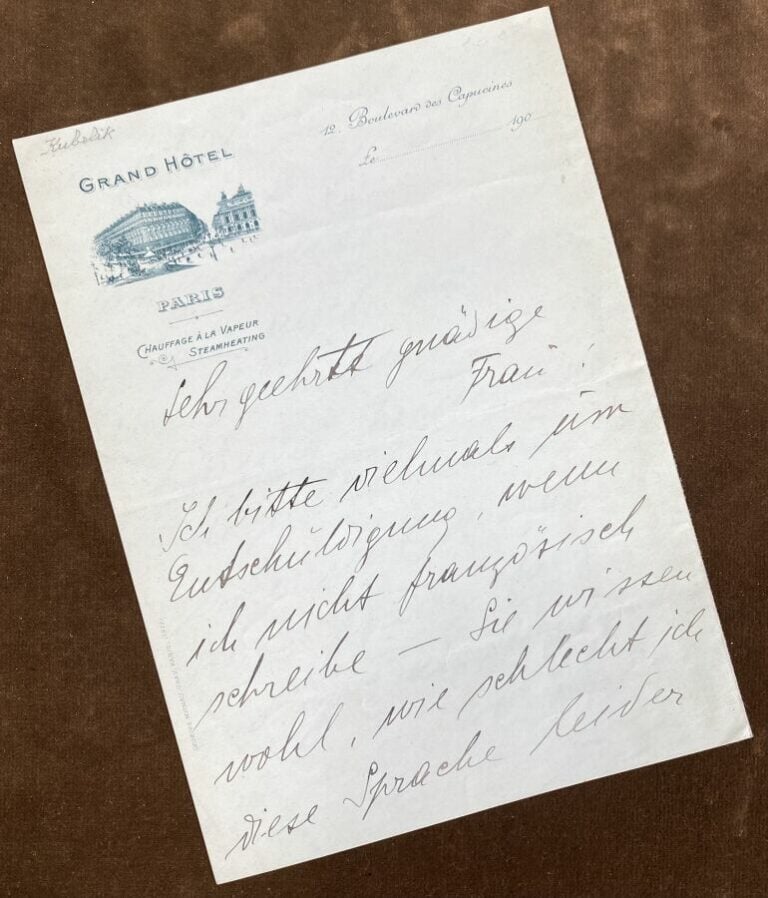 Kubelik
GRAND HÔTEL
PARIS
CHAUFFAGE À LA VAPEUR
STEAMHEATING
12, Boulevard des Capucines
Le 190
Sehr geehrte gnädige
Frau !
Ich bitte vielmals um
Entschuldigung, wenn
ich nicht französisch
schreibe — Sie wissen
wohl, wie schlecht ich
diese Sprache leider